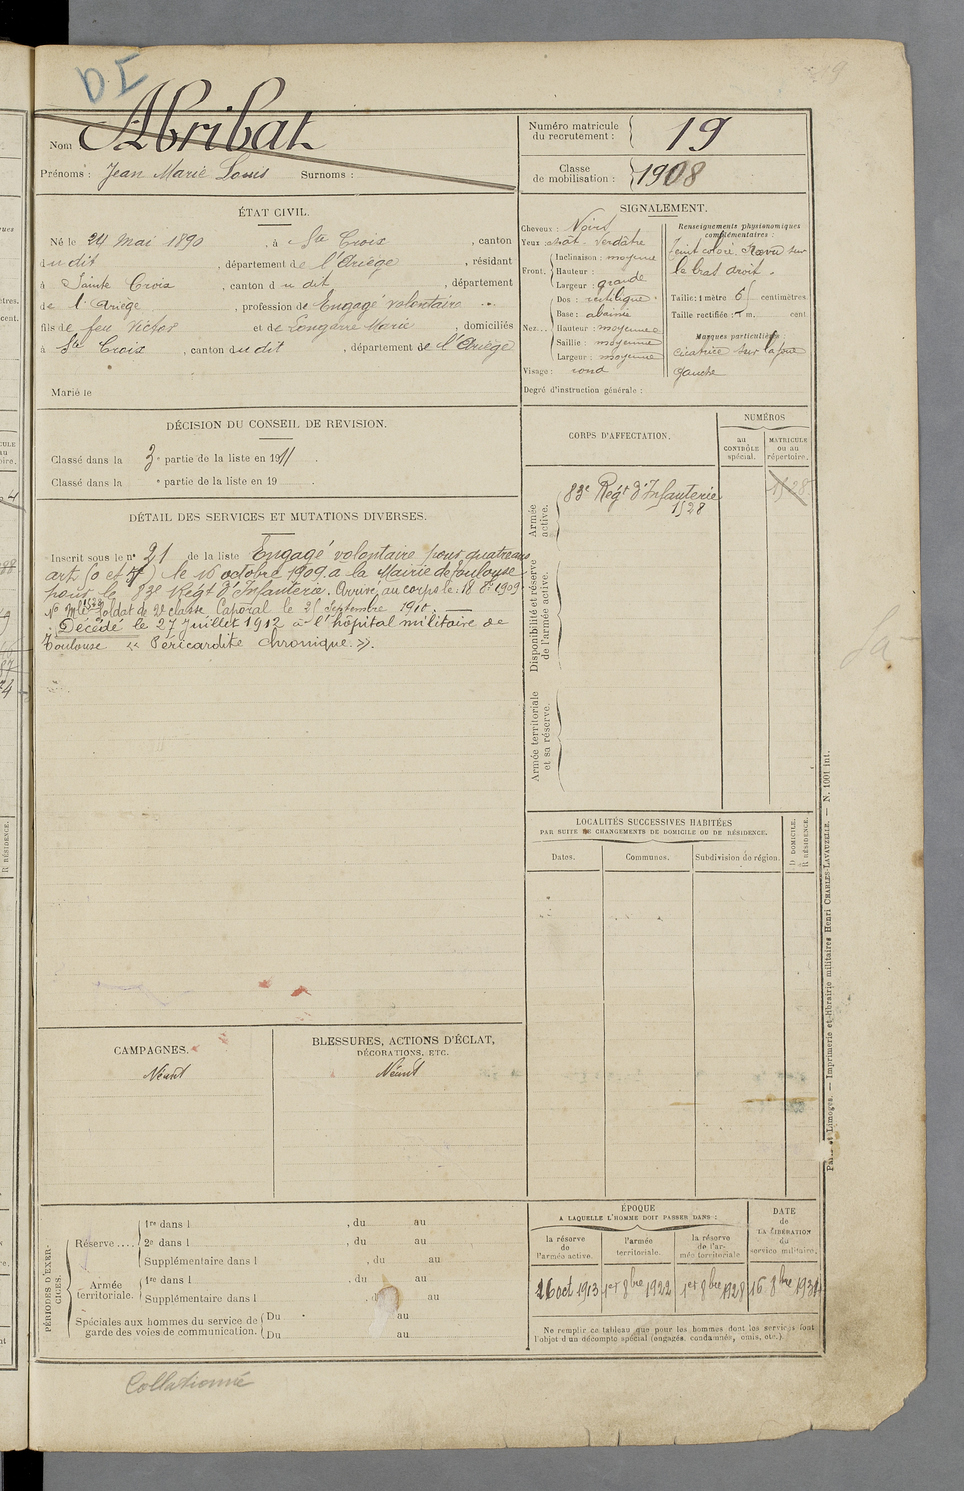 DI
Nom Abribat
Prénoms : Jean Marie Louis Surnoms :
Numéro matricule du recrutement : 19
Classe de mobilisation : 1908
ÉTAT CIVIL.
Né le 24 Mai 1890, à Ste Croix, canton
du dit, département de l'Ariège, résidant
à Sainte Croix, canton du dit, département
de l'Ariège, profession de Engagé volontaire
fils de feu Victor et de Longère Marie, domiciliés
à Ste Croix, canton du dit, département de l'Ariège
Marié le
SIGNALEMENT.
Cheveux : Noirs
Yeux : chât. verdâtre
Front. Inclinaison : moyenne
Hauteur :
Largeur : grande
Nez... Dos : rectiligne
Base : abaissée
Hauteur : moyenne
Saillie : moyenne
Largeur : moyenne
Visage : rond
Degré d'instruction générale :
Renseignements physionomiques
complémentaires :
Teint coloré. Nævus sur
le bras droit.
Taille : 1 mètre 65 centimètres.
Taille rectifiée : 1 m. cent.
Marques particulières
Cicatrice sur la joue
gauche
DÉCISION DU CONSEIL DE REVISION.
Classé dans la 3e partie de la liste en 1911.
Classé dans la e partie de la liste en 19
DÉTAIL DES SERVICES ET MUTATIONS DIVERSES.
Inscrit sous le n° 21 de la liste Engagé volontaire pour quatre ans
art. 50 et le 16 octobre 1909 à la Mairie de Toulouse
pour le 83e Régt d'Infanterie. Arrivé au corps le 18 8bre 1909
No Mle 1528 Soldat de 2e classe Caporal le 25 Septembre 1910.
Décédé le 27 Juillet 1912 à l'hôpital militaire de
Toulouse « Péricardite chronique. ».
CORPS D'AFFECTATION.
NUMÉROS
au CONTRÔLE spécial.
MATRICULE ou au répertoire.
Armée active.
83e Régt d'Infanterie 1528
1528
Disponibilité et réserve de l'armée active.
Armée territoriale et sa réserve.
LOCALITÉS SUCCESSIVES HABITÉES
PAR SUITE DE CHANGEMENTS DE DOMICILE OU DE RÉSIDENCE.
Dates.
Communes.
Subdivision de région.
D DOMICILE.
R RÉSIDENCE.
CAMPAGNES.
Néant
BLESSURES, ACTIONS D'ÉCLAT,
DÉCORATIONS, ETC.
Néant
PÉRIODES D'EXERCICES.
Réserve.... 1re dans l , du au
2e dans l , du au
Supplémentaire dans l , du au
Armée territoriale. 1re dans l , du au
Supplémentaire dans l , du au
Spéciales aux hommes du service de
garde des voies de communication. Du au
Du au
ÉPOQUE
A LAQUELLE L'HOMME DOIT PASSER DANS :
la réserve de l'armée active.
l'armée territoriale.
la réserve de l'armée territoriale
DATE de LA LIBÉRATION du service militaire.
16 oct 1913
1er 8bre 1922
1er 8bre 1928
16 8bre 1934
Ne remplir ce tableau que pour les hommes dont les services font
l'objet d'un décompte spécial (engagés, condamnés, omis, etc.).
Paris et Limoges. — Imprimerie et librairie militaires Henri CHARLES-LAVAUZELLE. — N. 1001 int.
Collationné